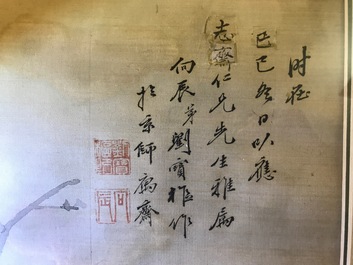 時在
己巳冬日以應
志齋仁兄先生雅屬
向辰弟劉寶作
於京師寓齋